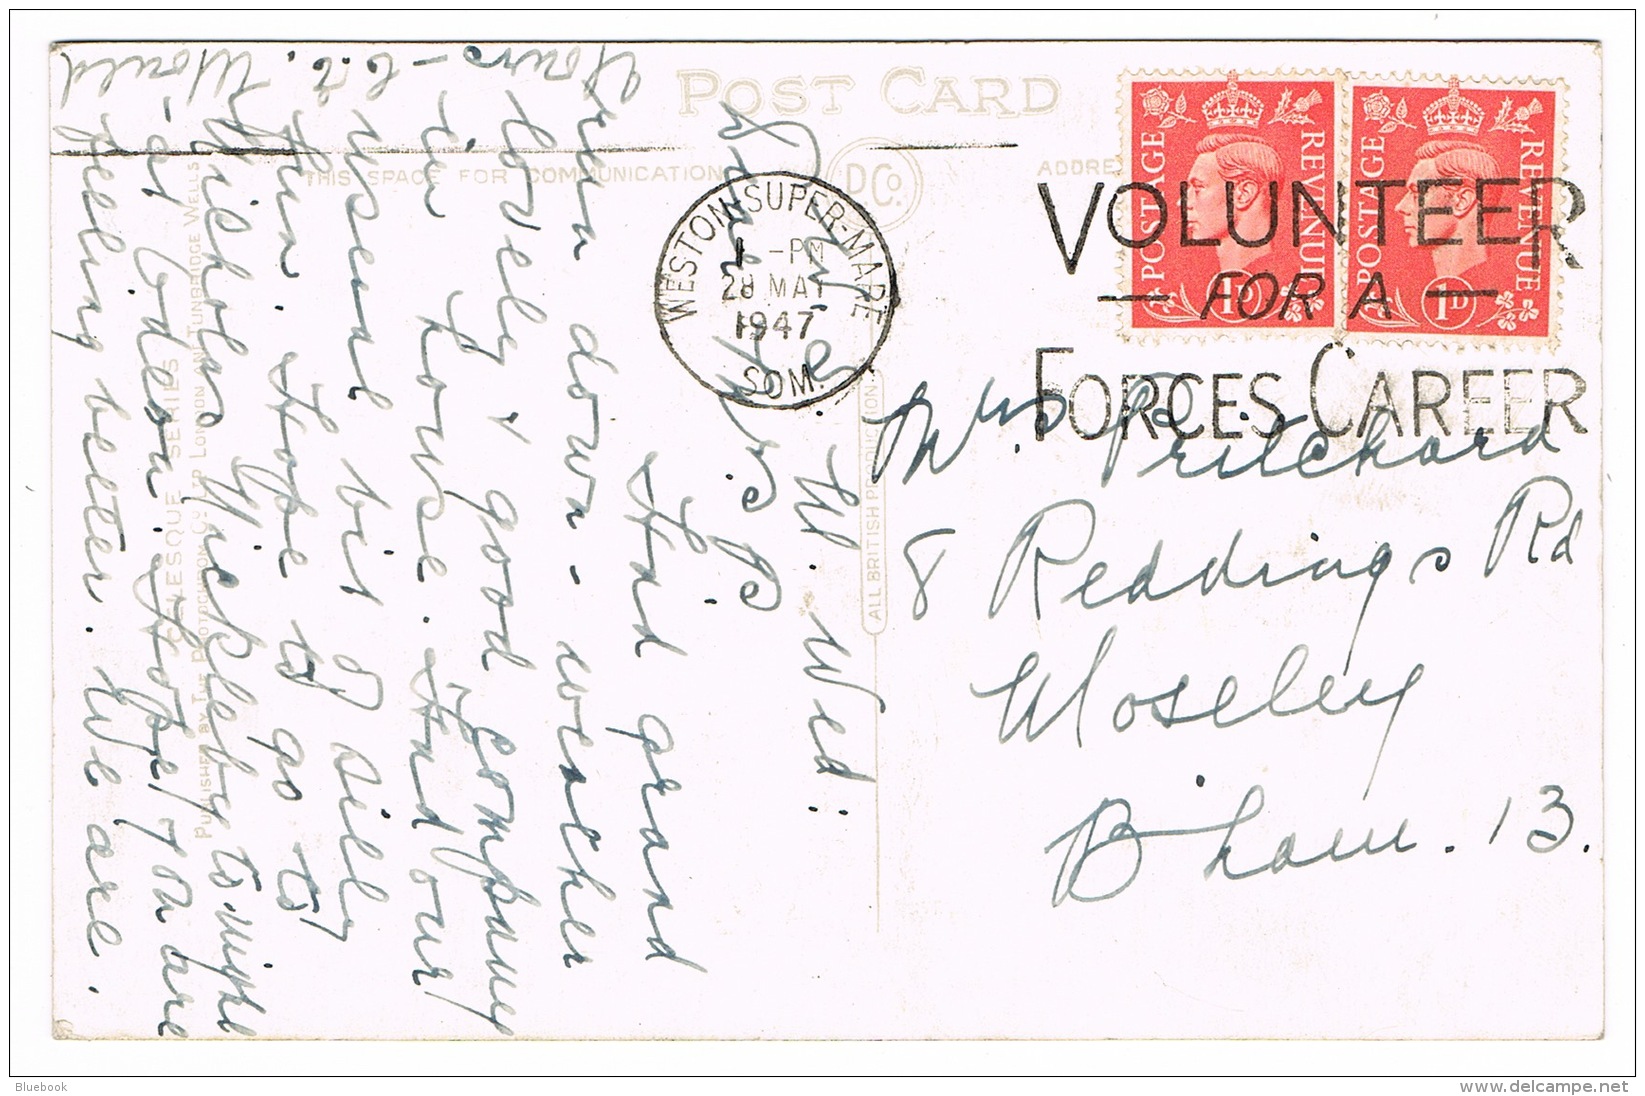 POST CARD
THIS SPACE FOR COMMUNICATION
ADDRE
DCo.
WESTON-SUPER-MARE
1 - PM
28 MAY
1947
SOM.
VOLUNTEER
— FOR A —
FORCES CAREER
POSTAGE
REVENUE
1D
POSTAGE
REVENUE
1D
Mrs Pritchard
8 Reddings Rd
Moseley
B'ham. 13.
ALL BRITISH PRODUCTION
W. Wed:
Had grand
run down - weather
lovely & good company
in house. Had our
usual bit of silly
fun. Hope to go to
Nicholas Nickleby to-night
- at Odeon. Hope you are
feeling better. We are.
Would
Yours -
PUBLISHED BY THE PHOTOCHROM CO. LTD LONDON AND TUNBRIDGE WELLS
SERIES
Bluebook
www.delcampe.net